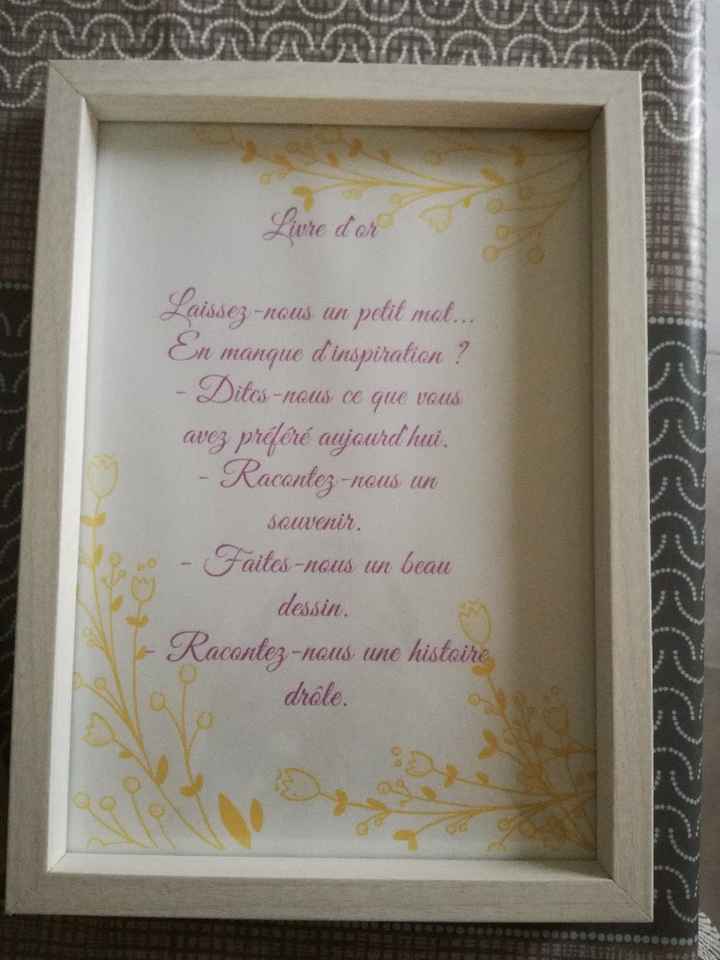 Livre d'or
Laissez-nous un petit mot...
En manque d'inspiration ?
- Dites-nous ce que vous
avez préféré aujourd'hui.
- Racontez-nous un
souvenir.
- Faites-nous un beau
dessin.
- Racontez-nous une histoire
drôle.